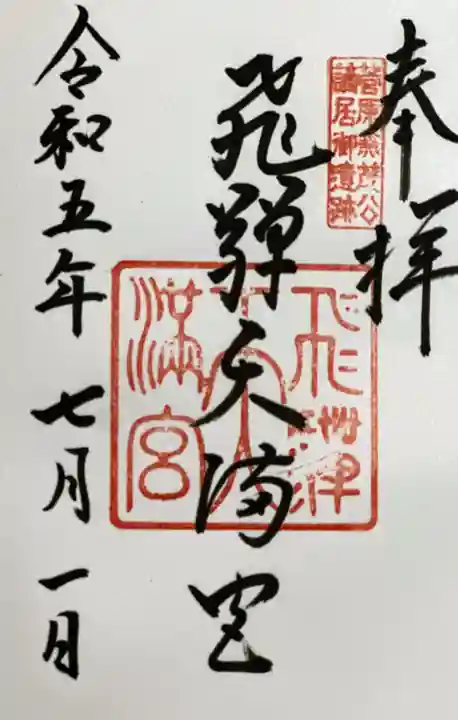 奉拝
菅原兼茂公
謫居御遺跡
飛驒天満宮
飛州津
天
滿宮
令和五年七月一日